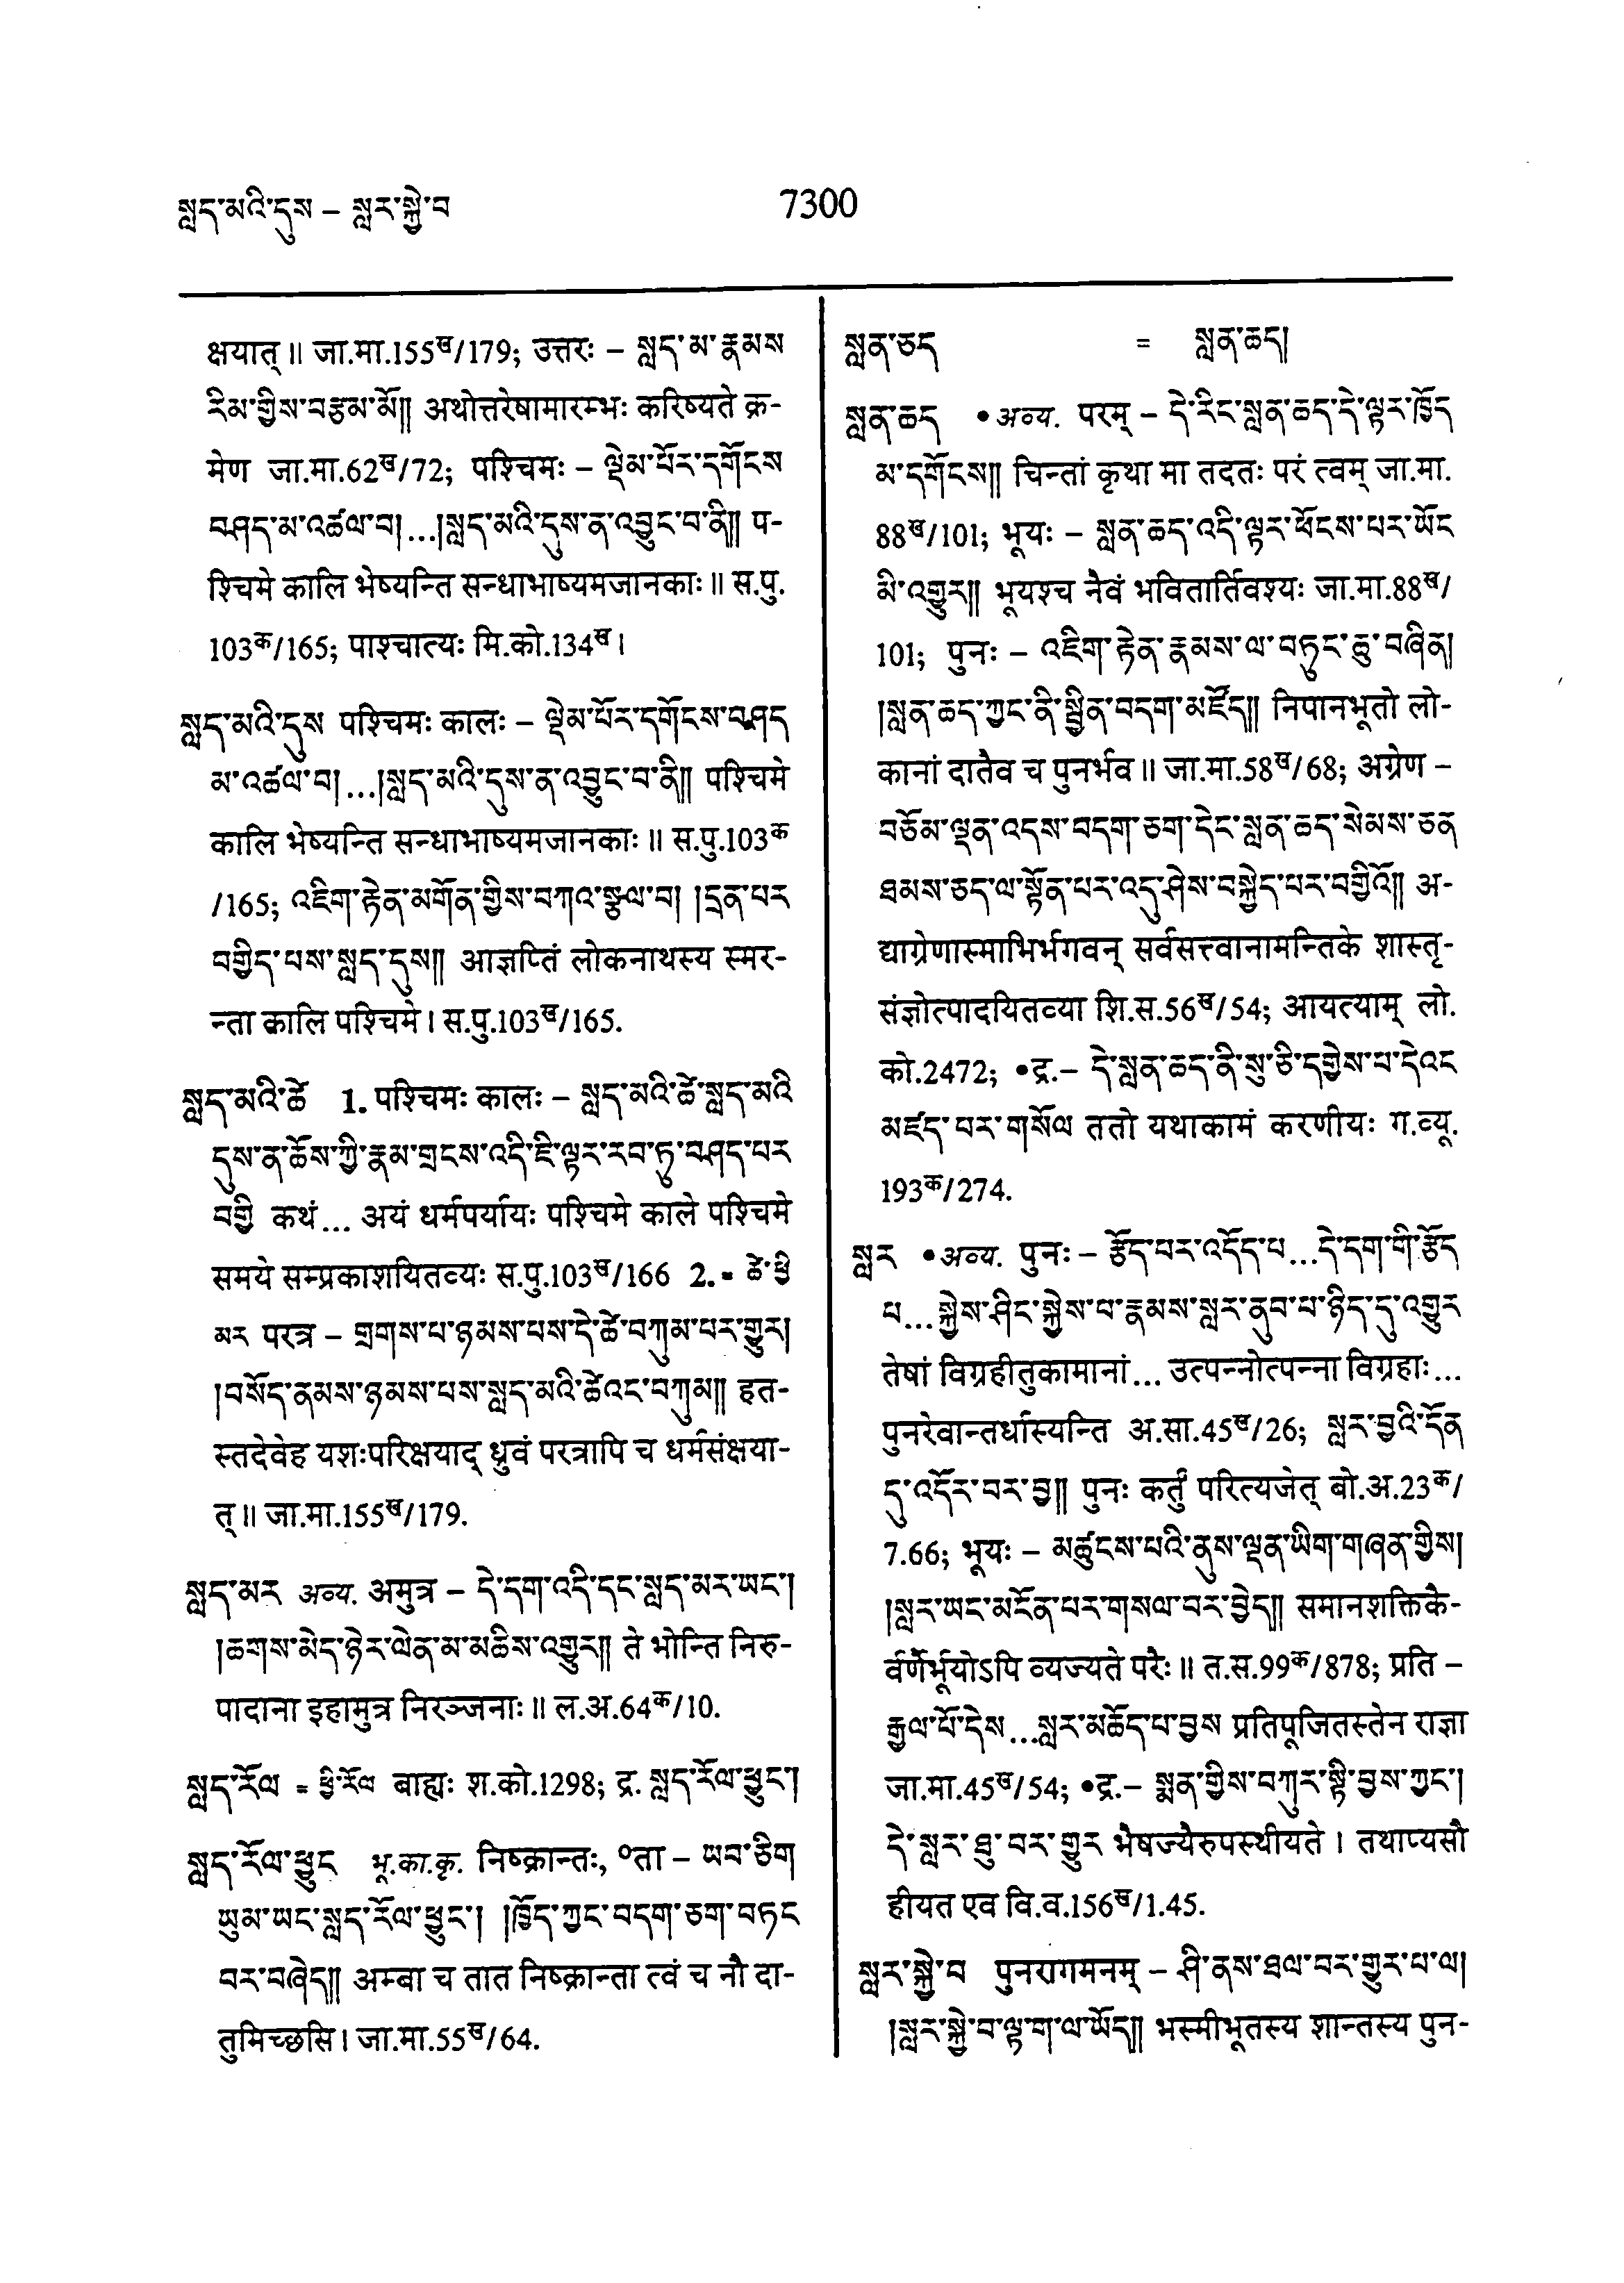 སླད་མའི་དུས – སླར་སྐྱེ་བ
7300
क्षयात् ॥ जा.मा.155ख/179; उत्तरः – སླད་མ་རྣམས
རིམ་གྱིས་བརྩམ་མོ༎ अथोत्तरेषामारम्भः करिष्यते क्र-
मेण जा.मा.62ख/72; पश्चिमः – ལྡེམ་པོར་དགོངས
བཤད་མ་འཚལ་བ། ...།སླད་མའི་དུས་ན་འབྱུང་བ་ནི༎ प-
श्चिमे कालि भेष्यन्ति सन्धाभाष्यमजानकाः ॥ स.पु.
103क/165; पाश्चात्यः मि.को.134ख।
སླད་མའི་དུས पश्चिमः कालः – ལྡེམ་པོར་དགོངས་བཤད
མ་འཚལ་བ། ...།སླད་མའི་དུས་ན་འབྱུང་བ་ནི༎ पश्चिमे
कालि भेष्यन्ति सन्धाभाष्यमजानकाः ॥ स.पु.103क
/165; འཇིག་རྟེན་མགོན་གྱིས་བཀའ་སྩལ་བ། །དྲན་པར
བགྱིད་པས་སླད་དུས༎ आज्ञप्तिं लोकनाथस्य स्मर-
न्ता कालि पश्चिमे। स.पु.103ख/165.
སླད་མའི་ཚེ 1. पश्चिमः कालः – སླད་མའི་ཚེ་སླད་མའི
དུས་ན་ཆོས་ཀྱི་རྣམ་གྲངས་འདི་ཇི་ལྟར་རབ་ཏུ་བཤད་པར
བགྱི कथं... अयं धर्मपर्यायः पश्चिमे काले पश्चिमे
समये सम्प्रकाशयितव्यः स.पु.103ख/166 2. = ཚེ་ཕྱི
མར परत्र – གྲགས་པ་ཉམས་པས་དེ་ཚེ་བཀུམ་པར་གྱུར།
།བསོད་ནམས་ཉམས་པས་སླད་མའི་ཚེའང་བཀུམ༎ हत-
स्तदेवेह यशःपरिक्षयाद् ध्रुवं परत्रापि च धर्मसंक्षया-
त् ॥ जा.मा.155ख/179.
སླད་མར अव्य. अमुत्र – དེ་དག་འདི་དང་སླད་མར་ཡང་།
།ཆགས་མེད་ཉེར་ལེན་མ་མཆིས་འགྱུར༎ ते भोन्ति निरु-
पादाना इहामुत्र निरञ्जनाः ॥ ल.अ.64क/10.
སླད་རོལ = ཕྱི་རོལ बाह्यः श.को.1298; द्र. སླད་རོལ་ཕྱུང་།
སླད་རོལ་ཕྱུང भू.का.कृ. निष्क्रान्तः, ०ता – ཡབ་ཅིག
ཡུམ་ཡང་སླད་རོལ་ཕྱུང་། །ཁྱོད་ཀྱང་བདག་ཅག་བཏང
བར་བཞེད༎ अम्बा च तात निष्क्रान्ता त्वं च नौ दा-
तुमिच्छसि। जा.मा.55ख/64.
སླན་ཅད = སླན་ཆད།
སླན་ཆད •अव्य. परम् – དེ་རིང་སླན་ཆད་དེ་ལྟར་ཁྱོད
མ་དགོངས༎ चिन्तां कृथा मा तदतः परं त्वम् जा.मा.
88ख/101; भूयः – སླན་ཆད་འདི་ལྟར་ཕོངས་པར་ཡོང
མི་འགྱུར༎ भूयश्च नैवं भवितार्तिवश्यः जा.मा.88ख/
101; पुनः – འཇིག་རྟེན་རྣམས་ལ་བཏུང་ཆུ་བཞིན།
།སླན་ཆད་ཀྱང་ནི་སྦྱིན་བདག་མཛོད༎ निपानभूतो लो-
कानां दातैव च पुनर्भव ॥ जा.मा.58ख/68; अग्रेण –
བཅོམ་ལྡན་འདས་བདག་ཅག་དེང་སླན་ཆད་སེམས་ཅན
ཐམས་ཅད་ལ་སྟོན་པར་འདུ་ཤེས་བསྐྱེད་པར་བགྱིའོ༎ अ-
द्याग्रेणास्माभिर्भगवन् सर्वसत्त्वानामन्तिके शास्तृ-
संज्ञोत्पादयितव्या शि.स.56ख/54; आयत्याम् लो.
को.2472; •द्र.– དེ་སླན་ཆད་ནི་སུ་ཅི་དགྱེས་པ་དེའང
མཛད་པར་གསོལ ततो यथाकामं करणीयः ग.व्यू.
193क/274.
སླར •अव्य. पुनः – རྩོད་པར་འདོད་པ...དེ་དག་གི་རྩོད
པ...སྐྱེས་ཤིང་སྐྱེས་པ་རྣམས་སླར་ནུབ་པ་ཉིད་དུ་འགྱུར
तेषां विग्रहीतुकामानां... उत्पन्नोत्पन्ना विग्रहाः...
पुनरेवान्तर्धास्यन्ति अ.सा.45ख/26; སླར་བྱའི་དོན
དུ་འདོར་བར་བྱ༎ पुनः कर्तुं परित्यजेत् बो.अ.23क/
7.66; भूयः – མཚུངས་པའི་ནུས་ལྡན་ཡིག་གཞན་གྱིས།
།སླར་ཡང་མངོན་པར་གསལ་བར་བྱེད༎ समानशक्तिकै-
र्वर्णैर्भूयोऽपि व्यज्यते परैः ॥ त.स.99क/878; प्रति –
རྒྱལ་པོ་དེས...སླར་མཆོད་པ་བྱས प्रतिपूजितस्तेन राज्ञा
जा.मा.45ख/54; •द्र.– སྨན་གྱིས་བཀུར་སྟི་བྱས་ཀྱང་།
དེ་སླར་ཐུ་བར་གྱུར भैषज्यैरुपस्थीयते। तथाप्यसौ
हीयत एव वि.व.156ख/1.45.
སླར་སྐྱེ་བ पुनरागमनम् – ཤི་ནས་ཐལ་བར་གྱུར་པ་ལ།
།སླར་སྐྱེ་བ་ལྟ་ག་ལ་ཡོད༎ भस्मीभूतस्य शान्तस्य पुन-